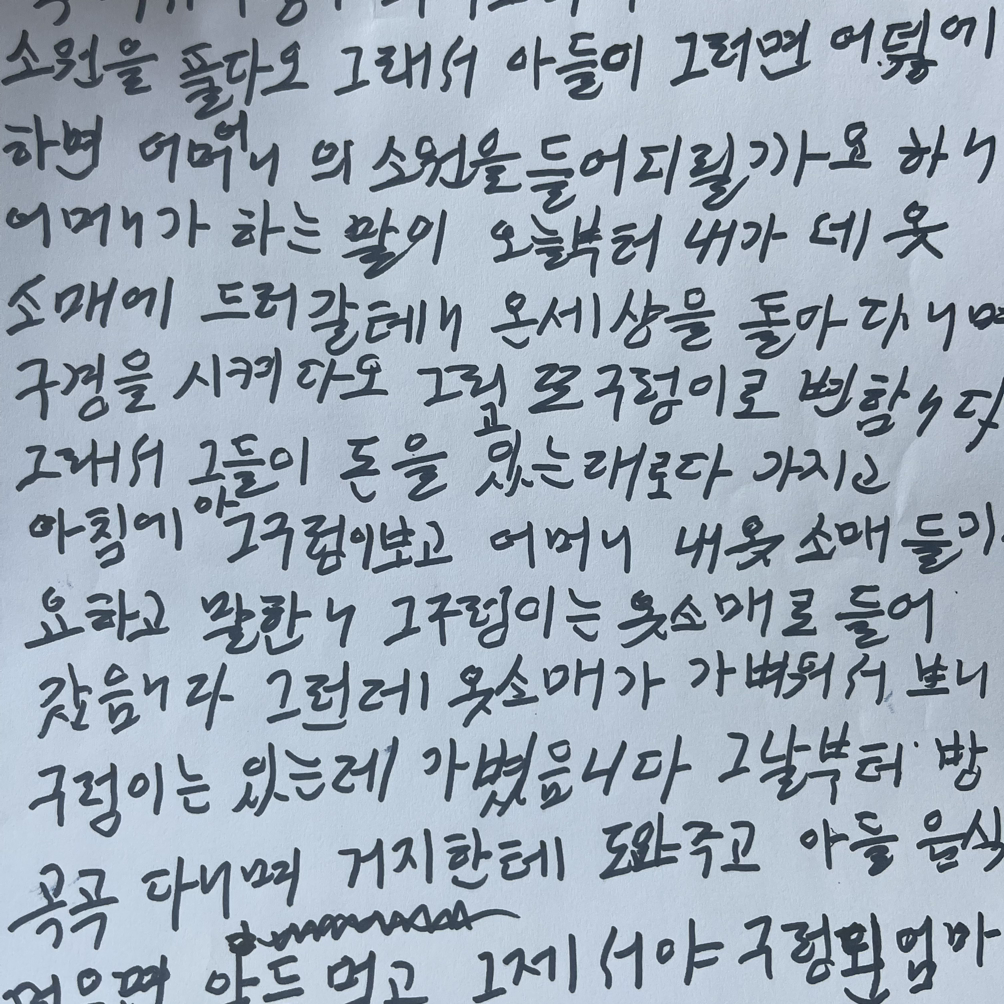 소원을 풀다오 그래서 아들이 그러면 어덯에
하면 어머어니 의 소원을 들어디릴까요 하니
어머니가 하는 말이 오늘부터 내가 데 옷
소매에 드러갈테니 온세상을 돌아 다니며
구경을 시켜다오 그리고 또구렁이로 변함니다
그래서 그들이 돈을 있는대로다 가지고
아침에 아 그구렁이보고 어머니 내옷 소매 들
요하고 말한니 그구렁이는 옷소매로 들어
갔음니라 그런데 옷소매가 가벼워서 보니
구렁이는 있는데 가볐읍니다 그날부터 방
곡곡 다니며 거지한테 도와주고 아들 음식
먹으면 안드먹고 그제서야 구렁된엄마